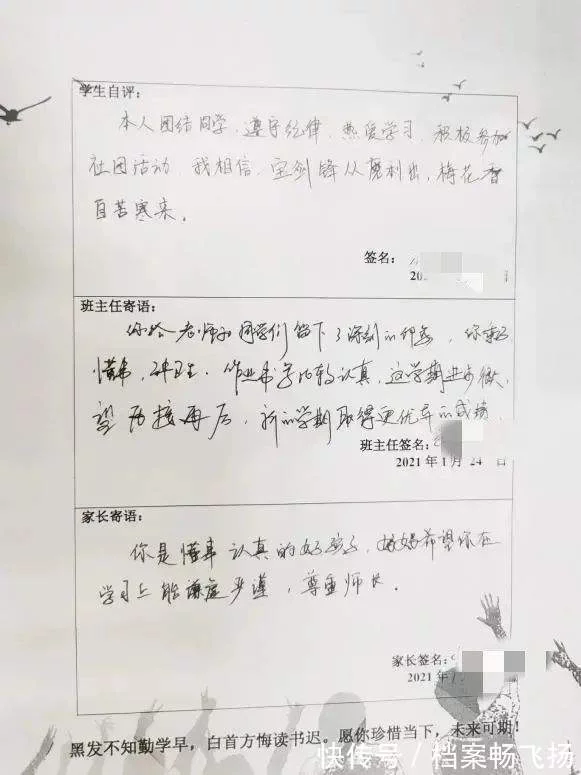 学生自评:
本人团结同学、遵守纪律、热爱学习、积极参加
社团活动 我相信,宝剑锋从磨利出,梅花香
自苦寒来。
签名:
20
班主任寄语:
你给老师和同学们留下了深刻的印象,你
懂事, 作业书写比较认真,这学期进步很大,
望再接再厉,新的学期取得更优异的成绩。
班主任签名:
2021年1月24日
家长寄语:
你是懂事认真的好孩子,妈妈希望你在
学习上能谦虚严谨,尊重师长。
家长签名:
2021年
黑发不知勤学早,白首方悔读书迟。愿你珍惜当下,未来可期!
快传号/档案畅飞扬